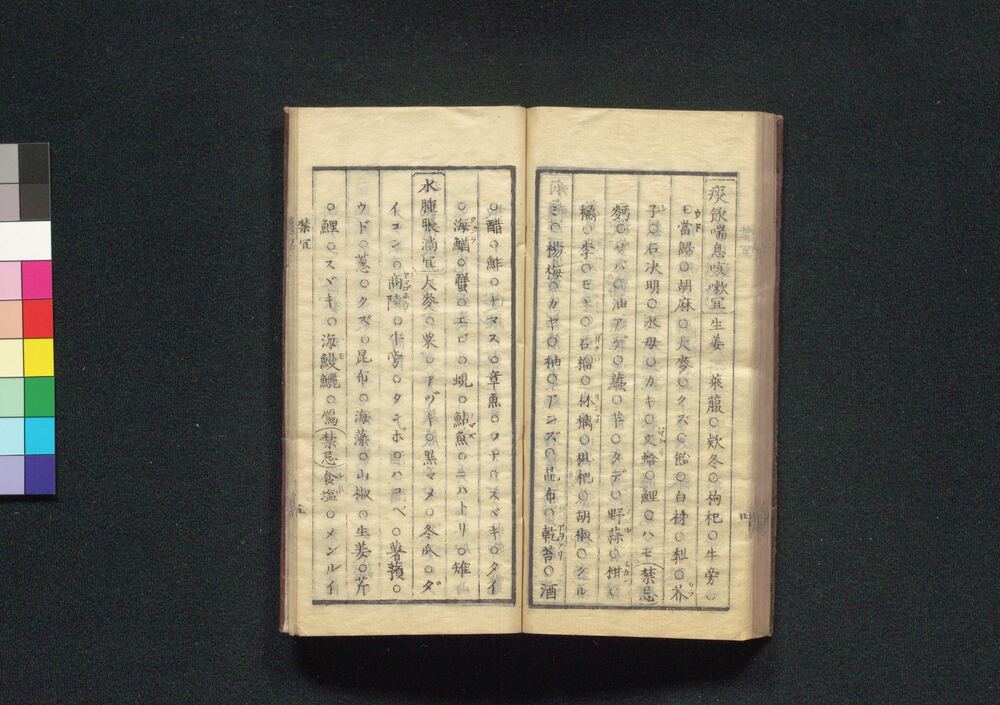 痰飲喘息咳嗽宜生姜 萊菔○欵冬○枸杞○牛旁○
當歸○胡麻○大麥○クズ○飴○白○梨○芥
子○石决明○水母○カキ○文蛤○鯉○ハモ禁忌
麪○ソバ○油アゲ○蕨○芋○タデ○野蒜○柑○
橘○李○モヽ○石榴○林檎○枇杷○胡椒○クル
ミ○楊梅○カヤ○柚○アンズ○昆布○乾苔○酒
○醋○鮓○ナマス○章魚○フナ○スヾキ○タイ
○海鰌○蟹○エビ○蜆○鮎魚○ニハトリ○雉
水腫脹満宜大麥○粟○アヅキ○黒マメ○冬瓜○ダ
イコン○商陸○牛旁○タンポヽ○ハコベ○○
ウド○葱○クズ○昆布○海藻○山椒○生姜○芹
○鯉○スヾキ○海鰻鱺○禁忌食塩○メンルイ
禁宜